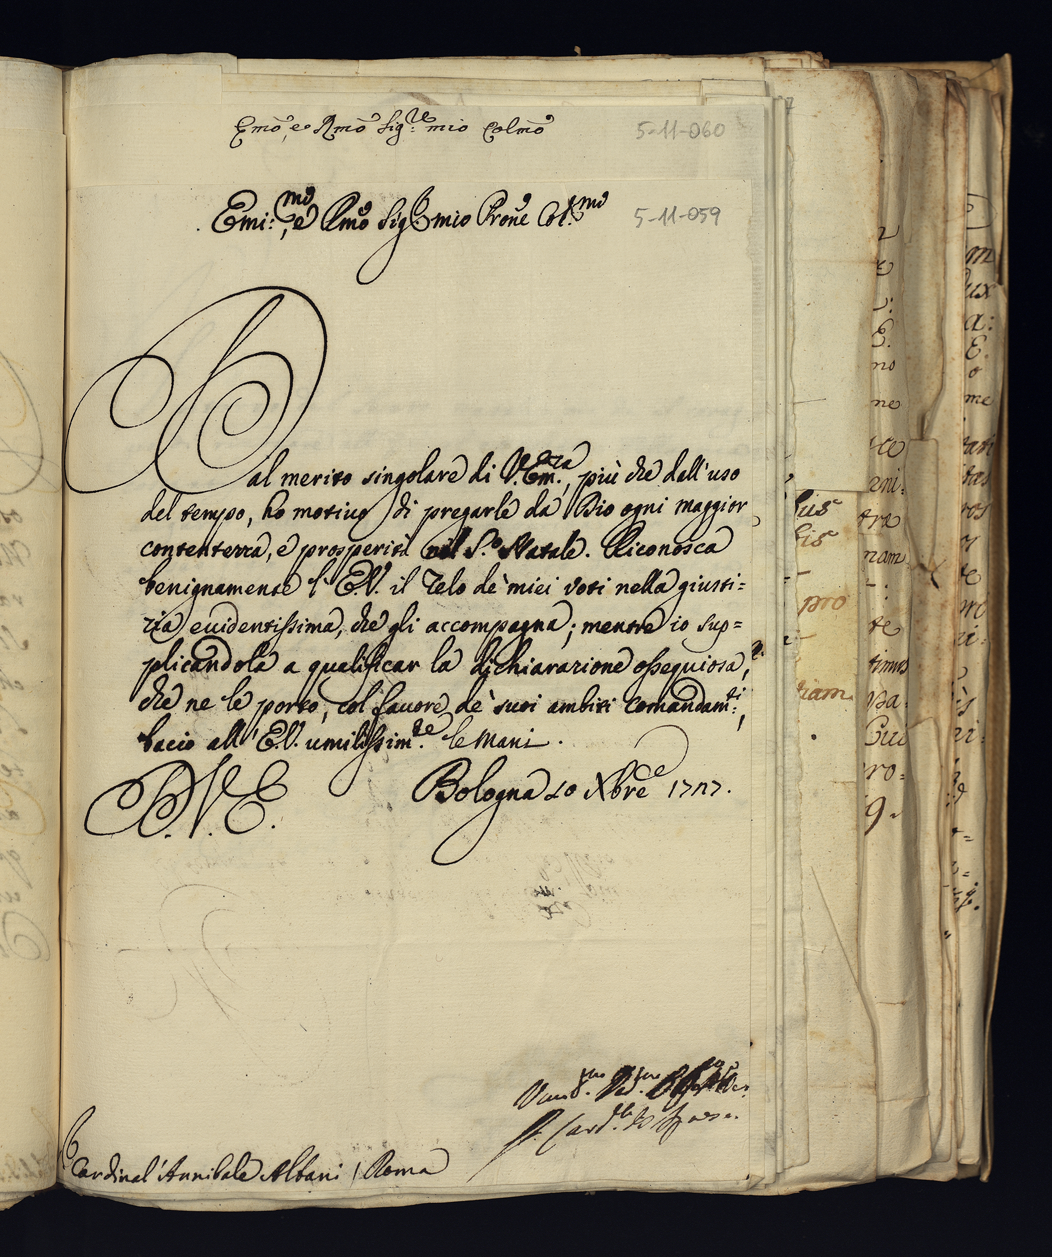 Em̃o, e Rm̃o Sig.re mio Colm̃o
5-11-060
Emi:mo, e Rmo Sig.r mio Prone Col.mo
5-11-059
Dal merito singolare di V. Em.za, più che dall'uso
del tempo, ho motivo di pregarle da Dio ogni maggior
contentezza, e prosperità nel S.o Natale. Riconosca
benignamente l'E.V. il Zelo de' miei voti nella giusti=
zia evidentissima, che gli accompagna; mentre io sup=
plicandola a qualificar la dichiarazione ossequiosa,
che ne le porto, col favore de' suoi ambiti Comandam.ti;
bacio all'E.V. umilissim.te le Mani.
D. V. E.
Bologna 20 Xbre 1727.
Card.le
Cardinal' Annibale Albani / Roma